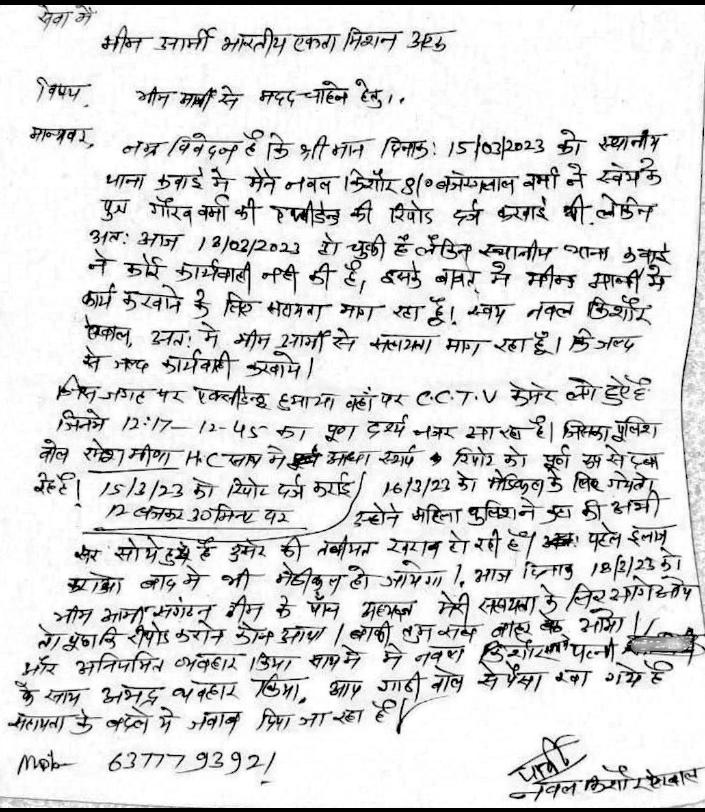 सेवा में
भीम आर्मी भारतीय एकता मिशन अटरू
विषय. भीम आर्मी से मदद चाहने हेतु।.
मान्यवर,
नम्र निवेदन है कि श्री मान दिनाक: 15/03/2023 को स्थानीय
थाना कवाई मे मेने नवल किशोर S/o वर्मा ने स्वंय के
पुत्र गौरव वर्मा की एक्सीडेन्ट की रिपोट दर्ज करवाई थी लेकिन
अत: आज 18/03/2023 हो चुकी है लेकिन स्थानीय थाना कवाई
ने कोई कार्यवाही नही की है, इसके बाबत मे भीम आर्मी मे
कार्य करवाने के लिए सहायता माग रहा हूँ। स्वय नवल किशोर
ऐरवाल, अत: मे भीम आर्मी से सहायता माग रहा हूँ। कि जल्द
से जल्द कार्यवाही करवाये।
जिस जगह पर एक्सीडेन्ट हुआ था वहाँ पर C.C.T.V केमरे लगे हुऐ है
जिनमे 12:17-12-45 का पुरा दर्श्य नजर आ रहा है। जिसका पुलिश
वाले रमेश मीणा H.C साथ मे रिपोट को पूर्ण रूप से दबा
रहे है। 15/3/23 को रिपोट दर्ज कराई 16/3/23 को मेडिकल के लिए गये तो
12 बजकर 30 मिनट पर उन्होने महिला पुलिश ने कहा की अभी
सर सोये हुऐ है उमर की तबीयत खराब हो रही है। पहले इलाज
कराओ बाद मे भी मेडीकल हो जायेगा। आज दिनाक 18/3/23 को
भीम आर्मी संगठन टीम के पाँच सदस्य मेरी सहायता के लिए आगे आये
तो पूछा कि रिपोट कराने कोन आया। बाकी तुम सब बाहर आओ।
और अनियमित व्यवहार किया साथ मे मे नवल किशोर पत्नी
के साथ अभद्र व्यवहार किया. आप गाडी वाले से पैसा खा गये है
सहायता के बदले मे जवाब दिया जा रहा है।
Mob- 6377793921
प्रार्थी
नवल किशोर ऐरवाल